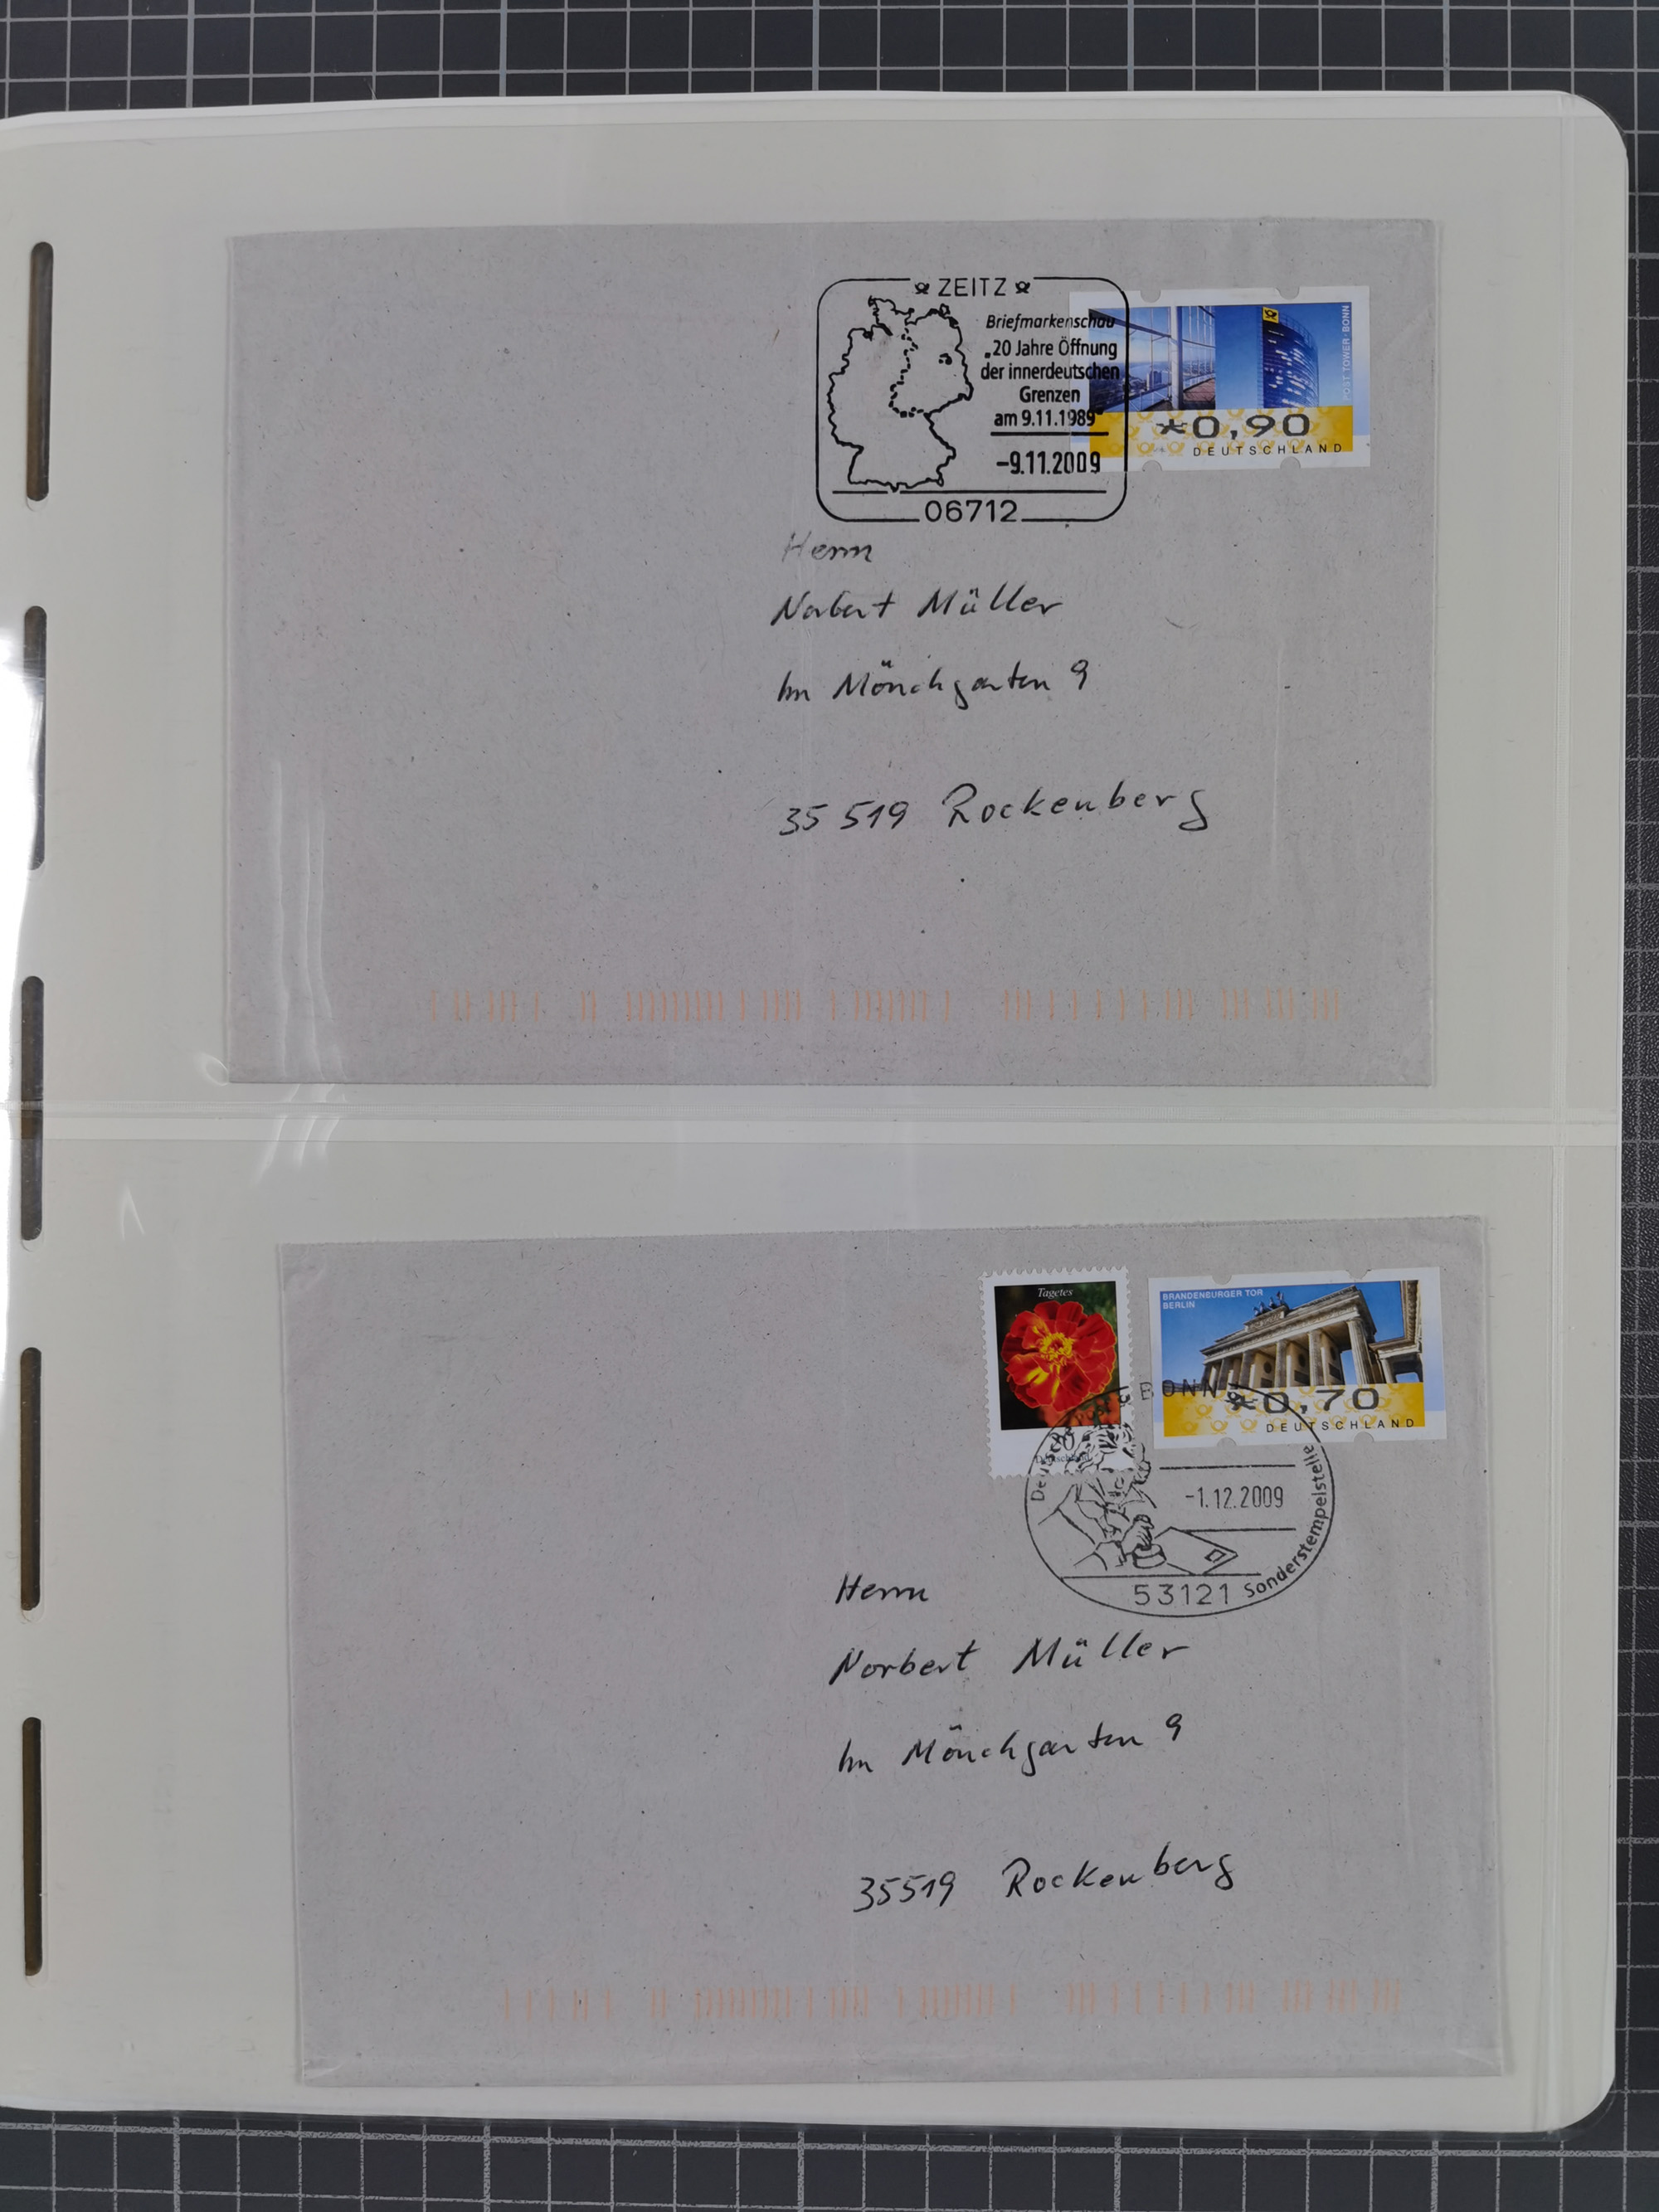 ZEITZ
Briefmarkenschau
„20 Jahre Öffnung
der innerdeutschen
Grenzen
am 9.11.1989"
-9.11.2009
06712
POST TOWER BONN
*0,90
DEUTSCHLAND
Herrn
Norbert Müller
Im Mönchgarten 9
35519 Rockenberg
Tagetes
BRANDENBURGER TOR
BERLIN
*0,70
DEUTSCHLAND
BONN
-1.12.2009
Sonderstempelstelle
53121
Herrn
Norbert Müller
Im Mönchgarten 9
35519 Rockenberg